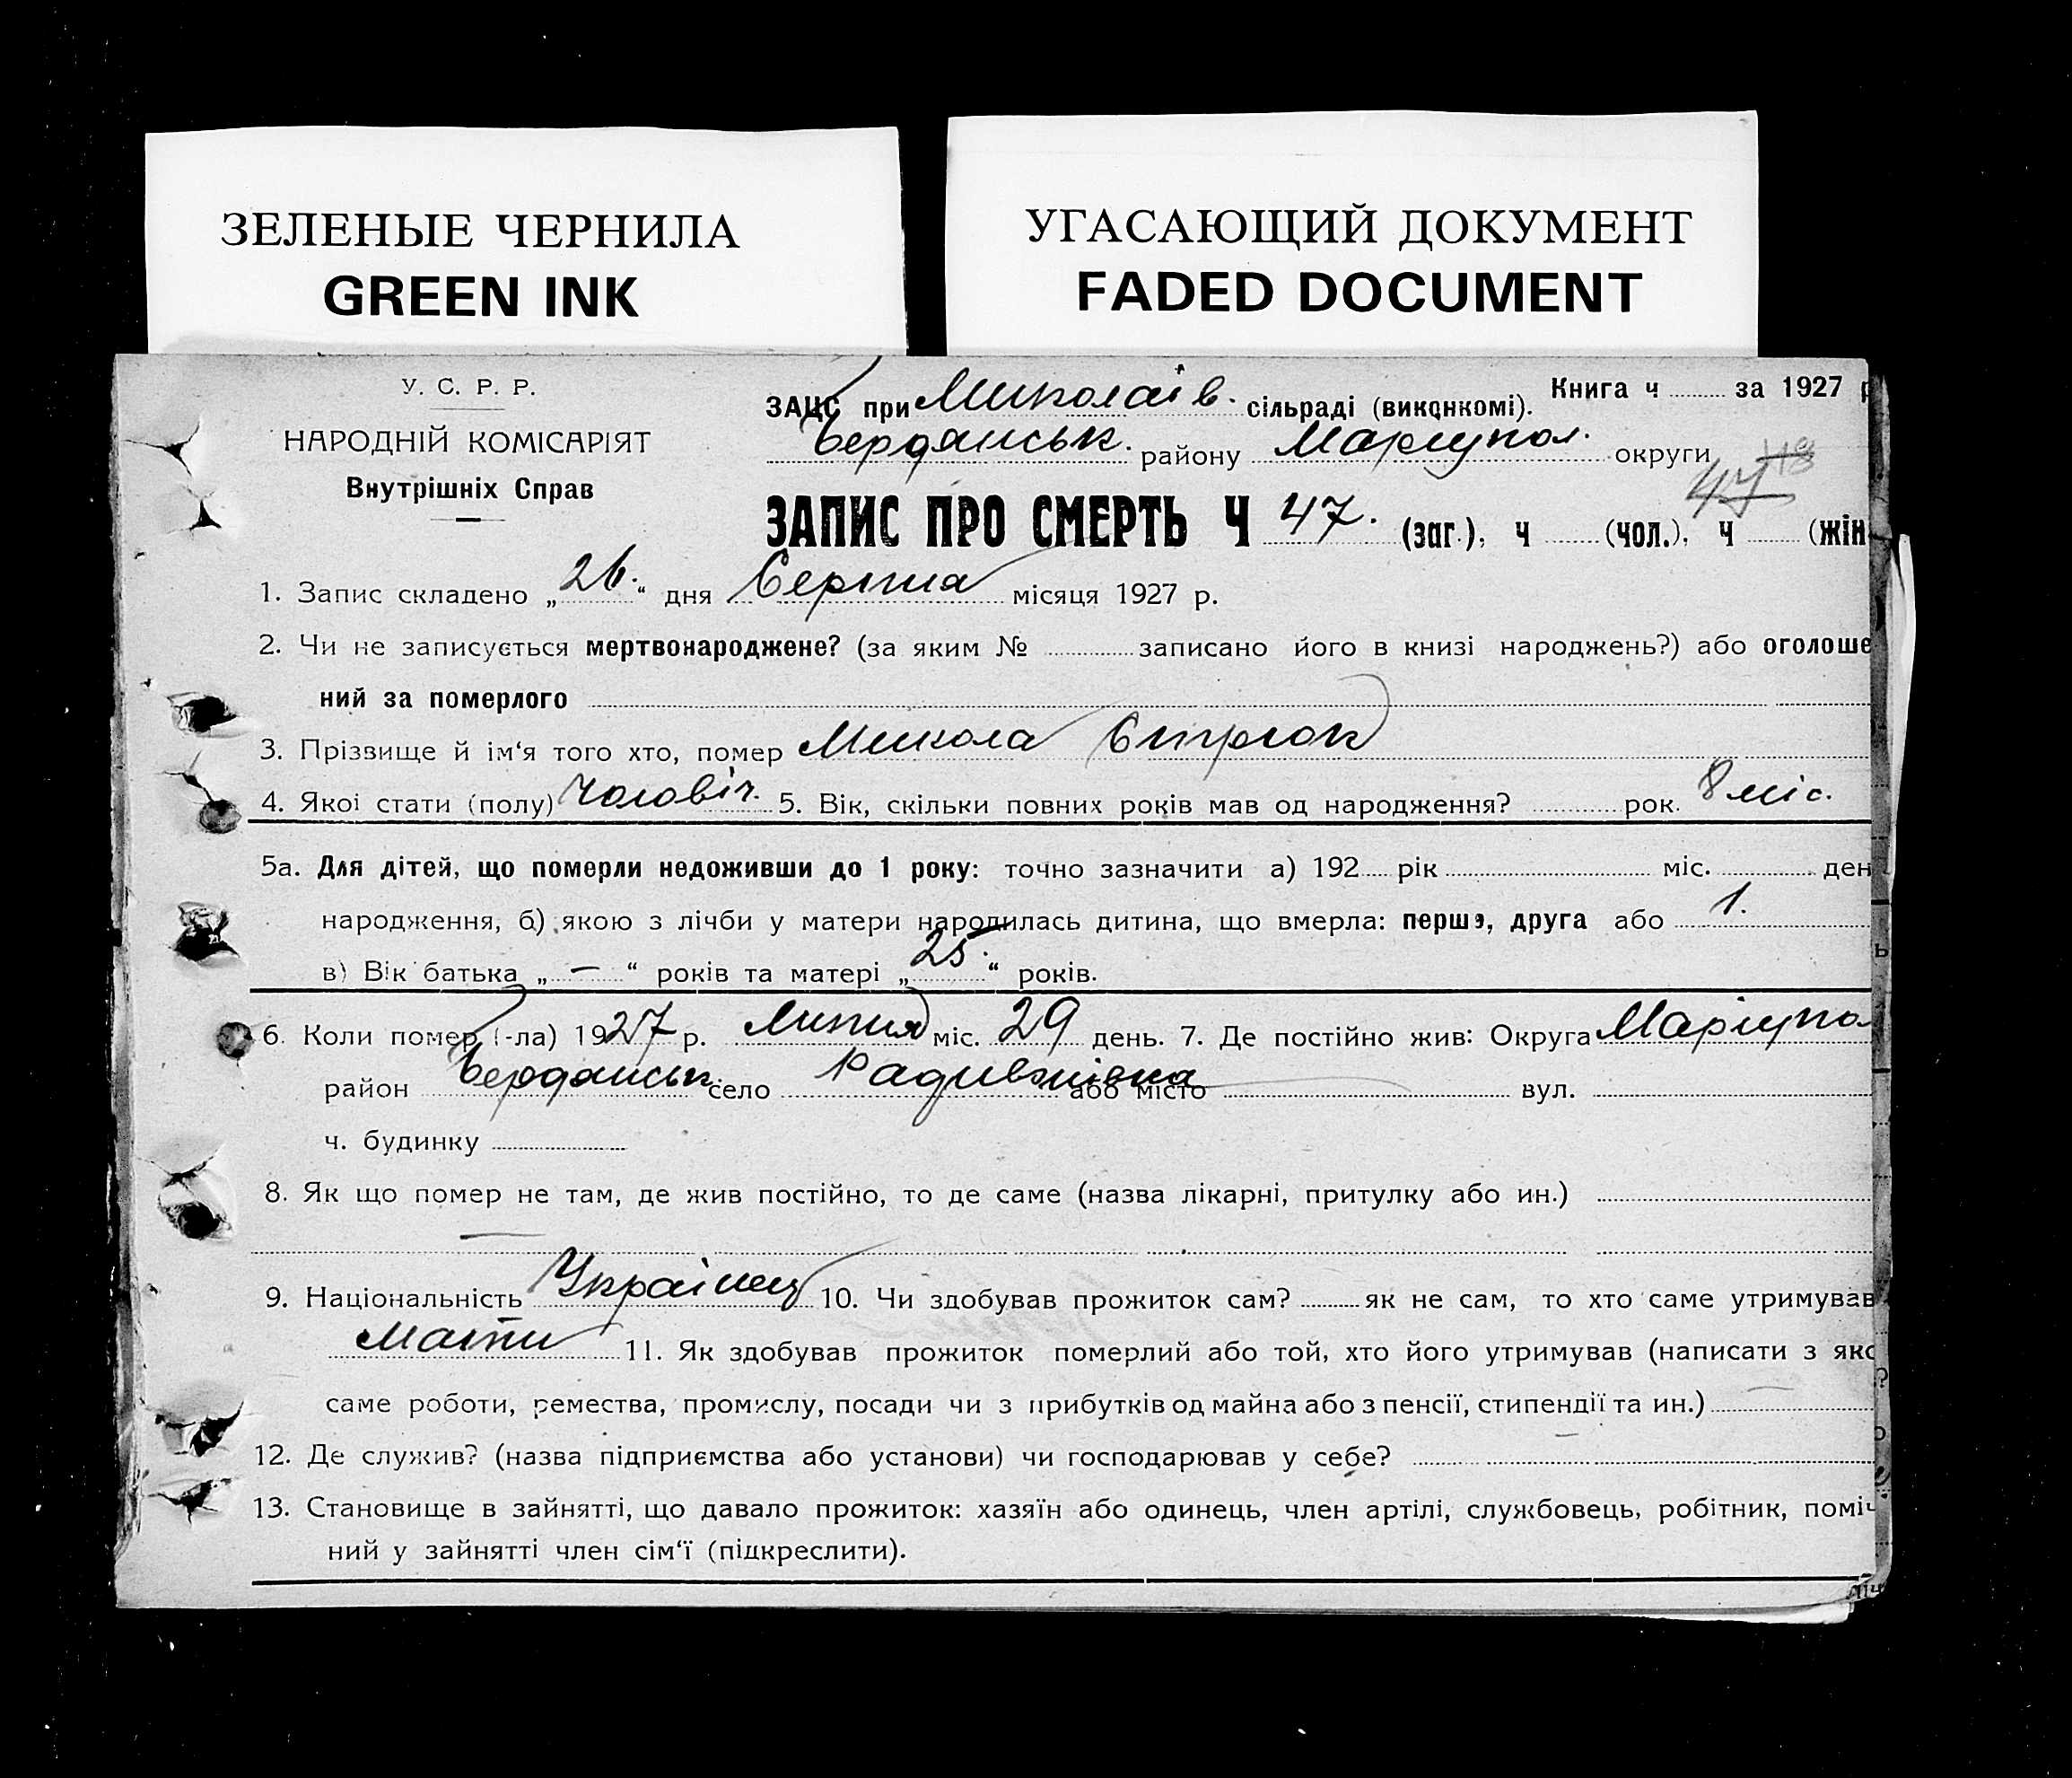 ЗЕЛЕНЫЕ ЧЕРНИЛА
GREEN INK
УГАСАЮЩИЙ ДОКУМЕНТ
FADED DOCUMENT
У. С. Р. Р.
НАРОДНІЙ КОМІСАРІЯТ
Внутрішніх Справ
Книга ч за 1927 р
ЗАЦС при Миколаів. сільраді (виконкомі).
Бердянськ. району Маріупол. округи
47
ЗАПИС ПРО СМЕРТЬ Ч 47. (заг.), ч (чол.), ч (жін
1. Запис складено „26.“ дня Серпня місяця 1927 р.
2. Чи не записується мертвонароджене? (за яким № записано його в книзі народжень?) або оголоше
ний за померлого
3. Прізвище й ім'я того хто, помер Микола
4. Якоі стати (полу) Чоловіч. 5. Вік, скільки повних років мав од народження? рок. 8 міс.
5а. Для дітей, що померли недоживши до 1 року: точно зазначити а) 192 рік міс. ден
народження, б) якою з лічби у матери народилась дитина, що вмерла: перша, друга або 1.
в) Вік батька „ — “ років та матері „25.“ років.
6. Коли помер (-ла) 1927 р. Липня міс. 29 день. 7. Де постійно жив: Округа Маріупол
район Бердянськ. село або місто вул.
ч. будинку
8. Як що помер не там, де жив постійно, то де саме (назва лікарні, притулку або ин.)
—
9. Національність Украінец 10. Чи здобував прожиток сам? як не сам, то хто саме утримував
Мати 11. Як здобував прожиток померлий або той, хто його утримував (написати з яко
саме роботи, ремества, промислу, посади чи з прибутків од майна або з пенсії, стипендії та ин.)
12. Де служив? (назва підприємства або установи) чи господарював у себе?
13. Становище в зайнятті, що давало прожиток: хазяїн або одинець, член артілі, службовець, робітник, поміч
ний у зайнятті член сім'ї (підкреслити).